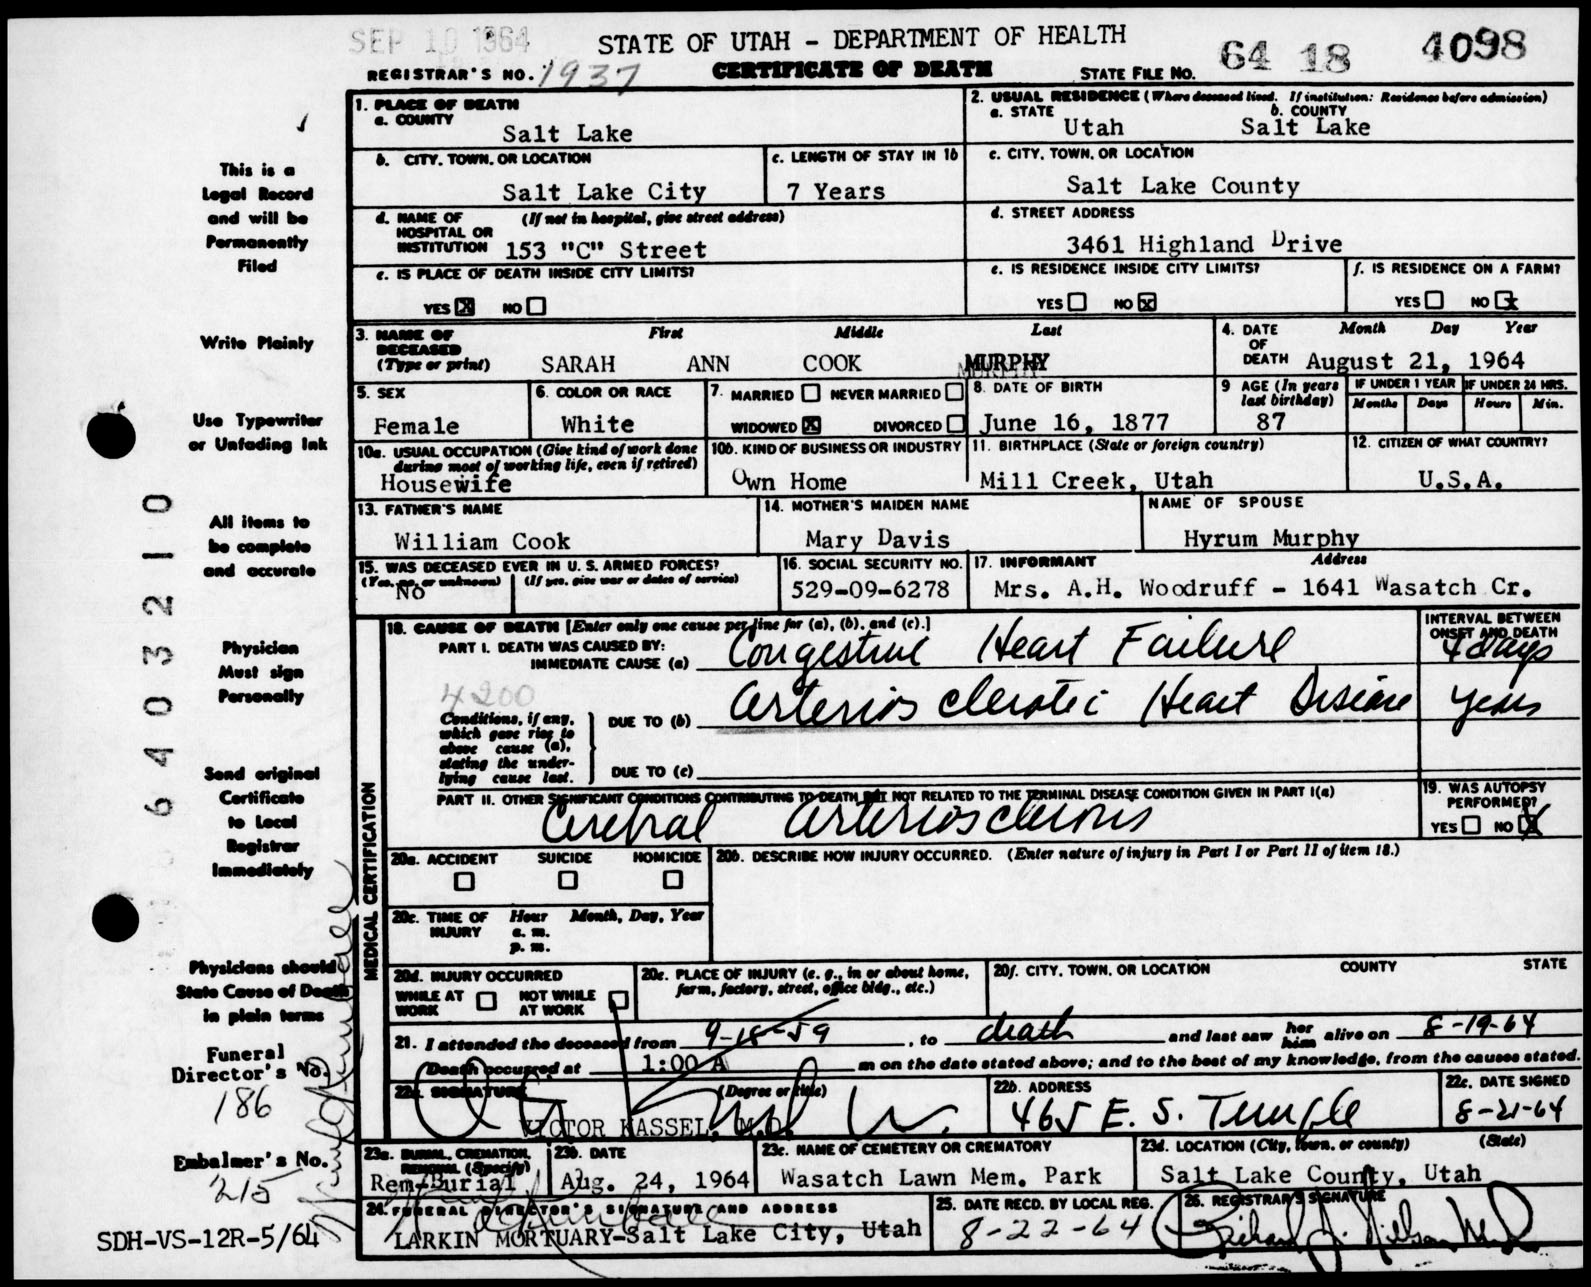 SEP 10 1964
STATE OF UTAH - DEPARTMENT OF HEALTH
64 18 4098
REGISTRAR'S NO. 1937
CERTIFICATE OF DEATH
STATE FILE NO.
This is a
Legal Record
and will be
Permanently
Filed
Write Plainly
Use Typewriter
or Unfading Ink
All items to
be complete
and accurate
Physician
Must sign
Personally
Send original
Certificate
to Local
Registrar
Immediately
Physicians should
State Cause of Death
in plain terms
Funeral
Director's No.
186
Embalmer's No.
215
SDH-VS-12R-5/64
6 4 0 3 2 1 0
1. PLACE OF DEATH
a. COUNTY
Salt Lake
2. USUAL RESIDENCE (Where deceased lived. If institution: Residence before admission)
a. STATE b. COUNTY
Utah Salt Lake
b. CITY, TOWN, OR LOCATION
Salt Lake City
c. LENGTH OF STAY IN 1b
7 Years
c. CITY, TOWN, OR LOCATION
Salt Lake County
d. NAME OF (If not in hospital, give street address)
HOSPITAL OR
INSTITUTION 153 "C" Street
d. STREET ADDRESS
3461 Highland Drive
e. IS PLACE OF DEATH INSIDE CITY LIMITS?
YES X NO
e. IS RESIDENCE INSIDE CITY LIMITS?
YES NO X
f. IS RESIDENCE ON A FARM?
YES NO X
3. NAME OF First Middle Last
DECEASED
(Type or print) SARAH ANN COOK MURPHY
4. DATE Month Day Year
OF
DEATH August 21, 1964
5. SEX
Female
6. COLOR OR RACE
White
7. MARRIED NEVER MARRIED
WIDOWED X DIVORCED
8. DATE OF BIRTH
June 16, 1877
9 AGE (In years
last birthday)
87
IF UNDER 1 YEAR
Months Days
IF UNDER 24 HRS.
Hours Min.
10a. USUAL OCCUPATION (Give kind of work done
during most of working life, even if retired)
Housewife
10b. KIND OF BUSINESS OR INDUSTRY
Own Home
11. BIRTHPLACE (State or foreign country)
Mill Creek, Utah
12. CITIZEN OF WHAT COUNTRY?
U.S.A.
13. FATHER'S NAME
William Cook
14. MOTHER'S MAIDEN NAME
Mary Davis
NAME OF SPOUSE
Hyrum Murphy
15. WAS DECEASED EVER IN U. S. ARMED FORCES?
(Yes, no, or unknown) (If yes, give war or dates of service)
No
16. SOCIAL SECURITY NO.
529-09-6278
17. INFORMANT Address
Mrs. A.H. Woodruff - 1641 Wasatch Cr.
MEDICAL CERTIFICATION
18. CAUSE OF DEATH [Enter only one cause per line for (a), (b), and (c).]
PART I. DEATH WAS CAUSED BY:
IMMEDIATE CAUSE (a) Congestive Heart Failure
INTERVAL BETWEEN
ONSET AND DEATH
4 days
4200
Conditions, if any,
which gave rise to
above cause (a),
stating the under-
lying cause last.
DUE TO (b) Arteriosclerotic Heart Disease years
DUE TO (c)
PART II. OTHER SIGNIFICANT CONDITIONS CONTRIBUTING TO DEATH BUT NOT RELATED TO THE TERMINAL DISEASE CONDITION GIVEN IN PART I(a)
Cerebral arteriosclerosis
19. WAS AUTOPSY
PERFORMED?
YES NO X
20a. ACCIDENT SUICIDE HOMICIDE
20b. DESCRIBE HOW INJURY OCCURRED. (Enter nature of injury in Part I or Part II of item 18.)
20c. TIME OF Hour Month, Day, Year
INJURY a. m.
p. m.
20d. INJURY OCCURRED
WHILE AT NOT WHILE
WORK AT WORK
20e. PLACE OF INJURY (e. g., in or about home,
farm, factory, street, office bldg., etc.)
20f. CITY, TOWN, OR LOCATION COUNTY STATE
21. I attended the deceased from 9-18-59, to death and last saw her him alive on 8-19-64
Death occurred at 1:00 A m on the date stated above; and to the best of my knowledge, from the causes stated.
22a. SIGNATURE (Degree or title)
VICTOR KASSEL, M.D.
22b. ADDRESS
465 E. S. Temple
22c. DATE SIGNED
8-21-64
23a. BURIAL, CREMATION,
REMOVAL (Specify)
Rem-Burial
23b. DATE
Aug. 24, 1964
23c. NAME OF CEMETERY OR CREMATORY
Wasatch Lawn Mem. Park
23d. LOCATION (City, town, or county) (State)
Salt Lake County, Utah
24. FUNERAL DIRECTOR'S SIGNATURE AND ADDRESS
LARKIN MORTUARY-Salt Lake City, Utah
25. DATE RECD. BY LOCAL REG.
8-22-64
26. REGISTRAR'S SIGNATURE